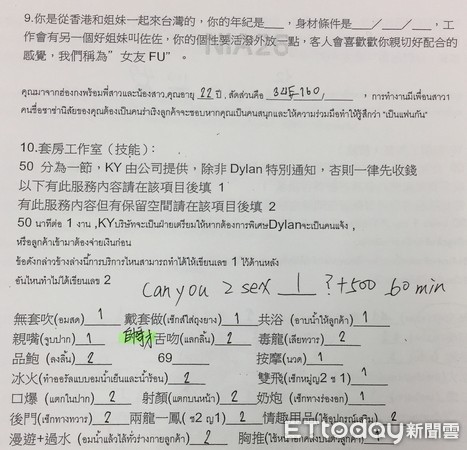 9.你是從香港和姐妹一起來台灣的，你的年紀是＿＿，身材條件是＿＿/＿＿/＿＿，工
作會有另一個好姐妹叫佐佐，你的個性要活潑外放一點，客人會喜歡歡你親切好配合的
感覺，我們稱為"女友 FU"。
คุณมาจากฮ่องกงพร้อมพี่สาวและน้องสาว.คุณอายุ 22 ปี .สัดส่วนคือ 34E 160 , การทำงานมีเพื่อนสาว1
คนชื่อซาซ่านิสัยของคุณต้องเป็นคนร่าเริงลูกค้าจะชอบหากคุณเป็นคนสนุกและให้ความร่วมมือทำให้รู้สึกว่า "เป็นแฟนกัน"
10.套房工作室（技能）：
50 分為一節，KY 由公司提供，除非 Dylan 特別通知，否則一律先收錢
以下有此服務內容請在該項目後填 1
有此服務內容但有保留空間請在該項目後填 2
50 นาทีต่อ 1 งาน ,KYบริษัทจะเป็นฝ่ายเตรียมให้หากต้องการพิเศษDylanจะเป็นคนแจ้ง ,
หรือลูกค้าเข้ามาต้องจ่ายเงินก่อน
ข้อดังกล่าวข้างล่างนี้การบริการไหนสามารถทำได้ให้เขียนเลข 1 ไว้ด้านหลัง
อันไหนทำไม่ได้เขียนเลข 2
can you 2 sex 1 ? +500 60 min
無套吹(อมสด) 1 戴套做(เซ็กส์ใส่ถุงยาง) 1 共浴 (อาบน้ำให้ลูกค้า) 1
親嘴(จูบปาก) 1 舌吻(แลกลิ้น) 2 毒龍(เลียทวาร) 2
品鮑 (ลงลิ้น) 2 69 按摩(นวด) 1
冰火(ทำออรัลแบบอมน้ำเย็นและน้ำร้อน) 2 雙飛(เซ็กหมู่ญ2 ช 1) 1
口爆 (แตกในปาก) 2 射顏(แตกบนหน้า) 2 奶炮 (เซ็กทางร่องอก) 1
後門(เซ็กทางทวาร) 2 兩龍一鳳( ช2 ญ1) 2 情趣用品(ใช้อุปกรณ์เสริม) 2
漫遊+過水 (อมน้ำแล้วไล้ทั่วร่างกายลูกค้า) 2 胸推(
ETtoday新聞雲